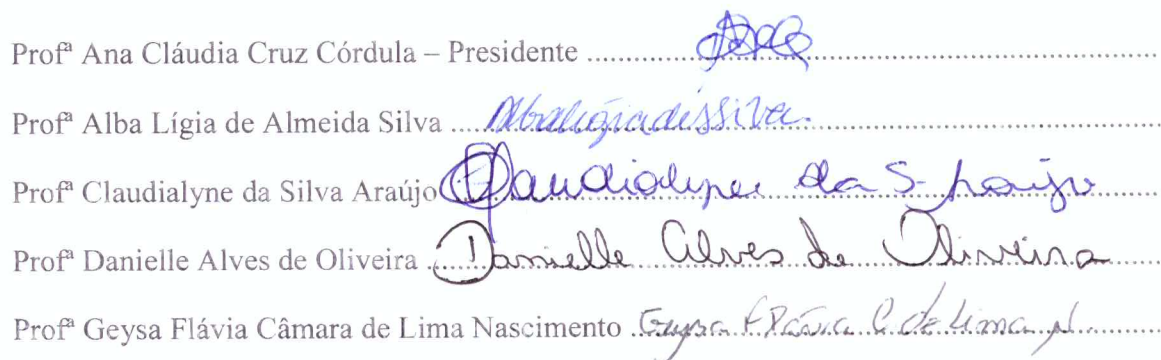 Profª Ana Cláudia Cruz Córdula – Presidente
Profª Alba Lígia de Almeida Silva Alba Lígia de A Silva
Profª Claudialyne da Silva Araújo Claudialyne da S. Araújo
Profª Danielle Alves de Oliveira Danielle Alves de Oliveira
Profª Geysa Flávia Câmara de Lima Nascimento Geysa Flávia C. de Lima N.